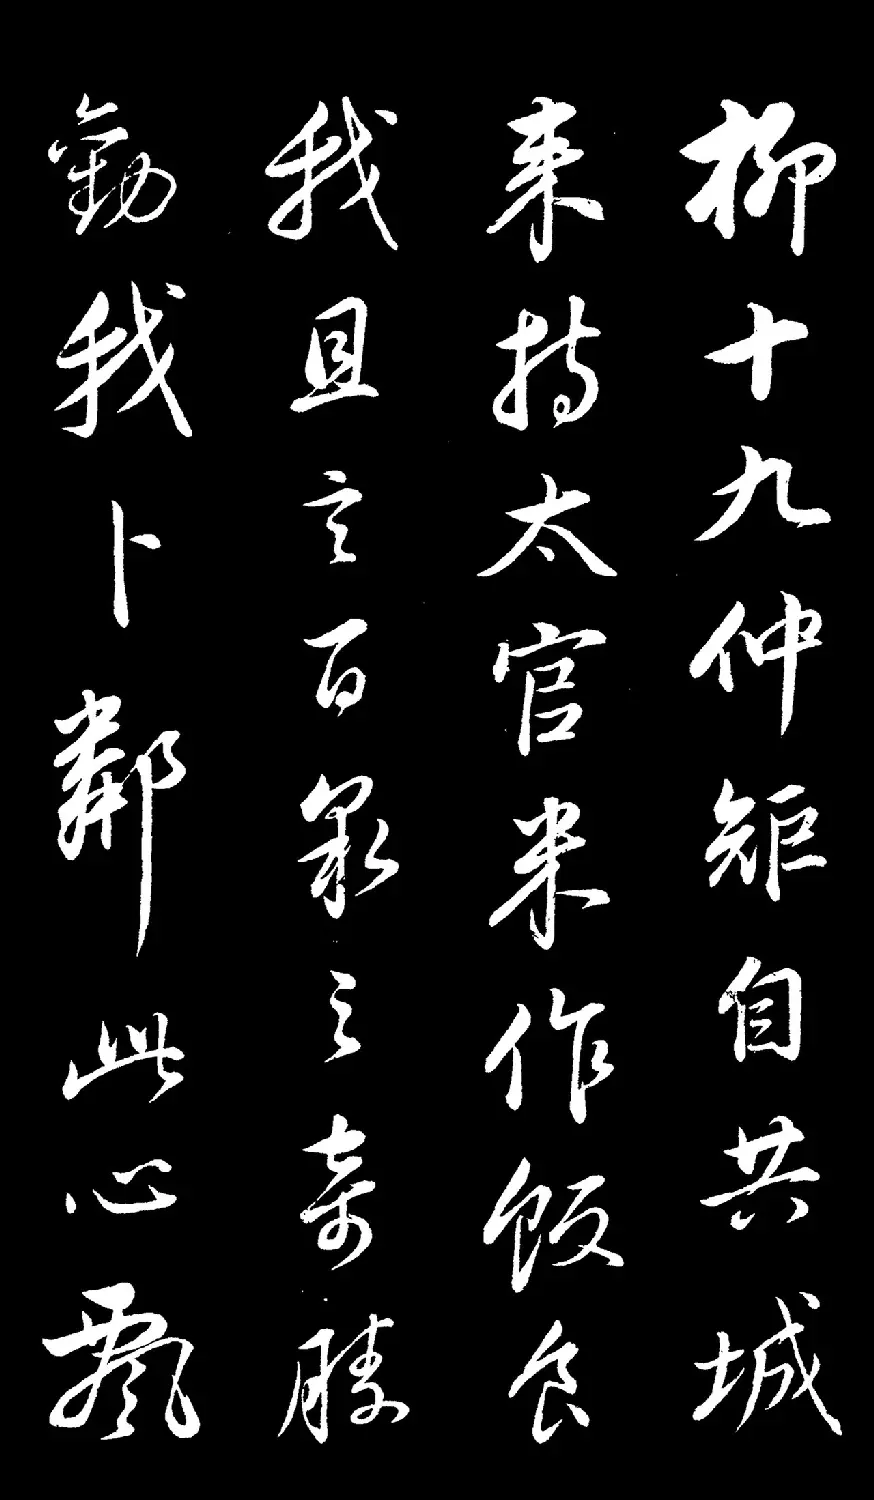 柳十九仲矩自共城
来持太官米作飯食
我且言百泉之奇勝
勸我卜鄰此心飄